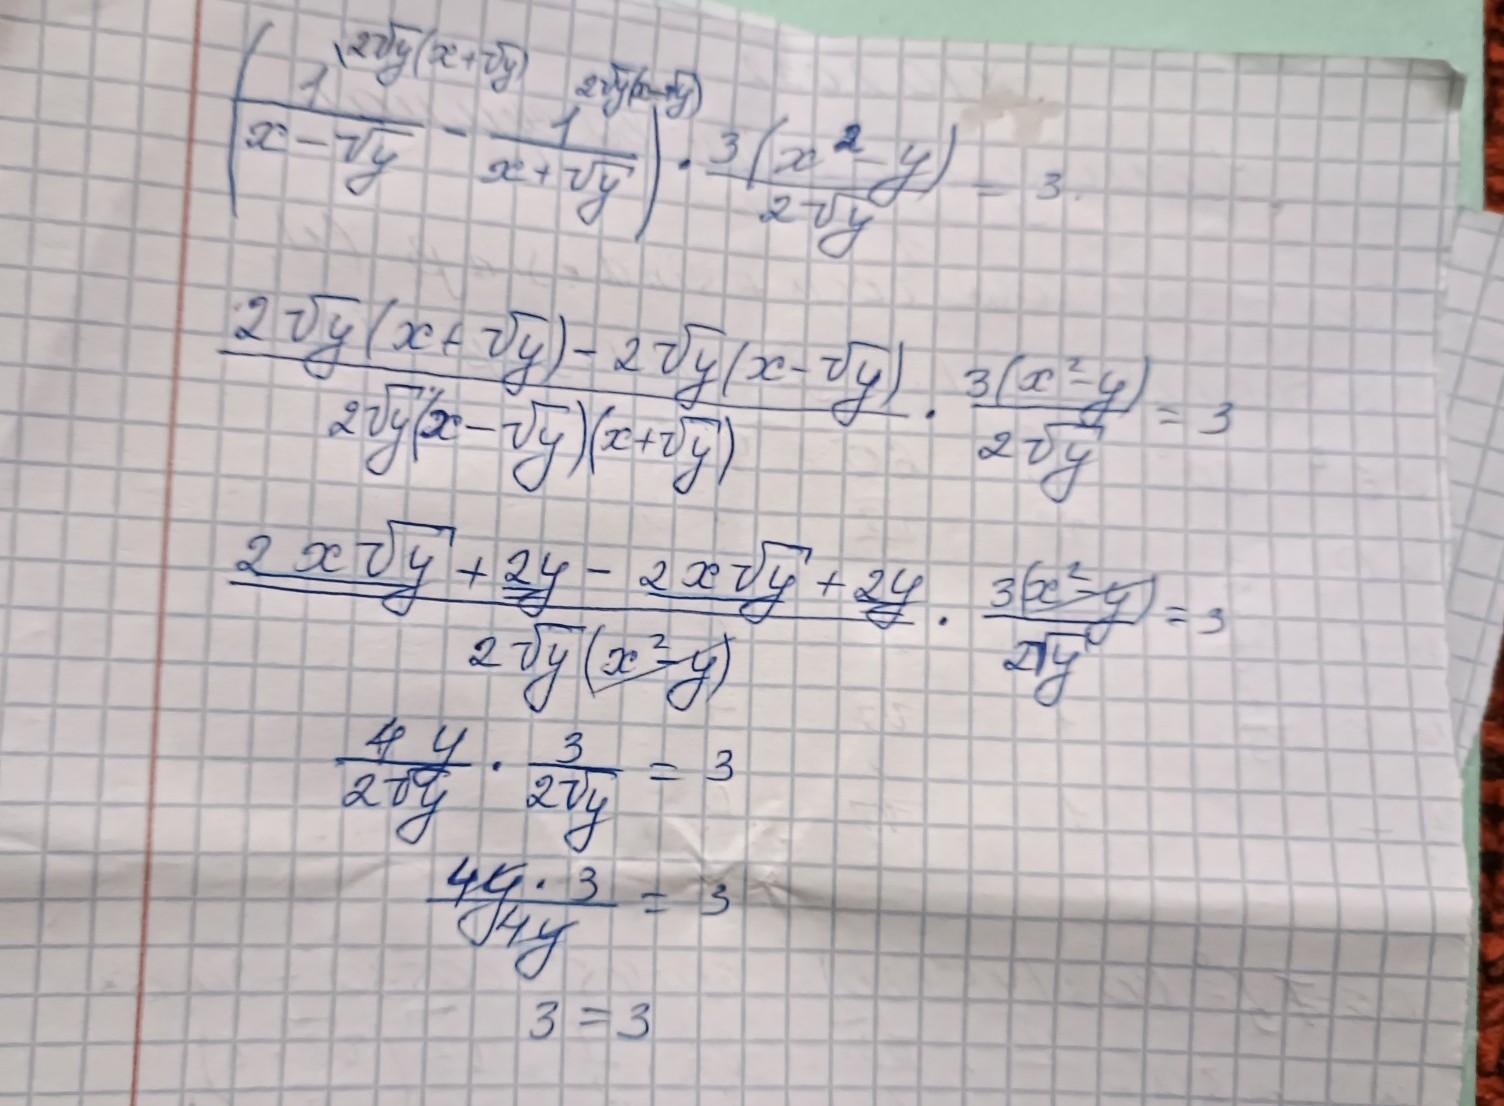 (1/(x-√y) \2√y(x+√y) - 1/(x+√y) 2√y(x-√y)) · 3(x²-y)/(2√y) = 3.
(2√y(x+√y)-2√y(x-√y))/(2√y(x-√y)(x+√y)) · 3(x²-y)/(2√y) = 3
(2x√y+2y-2x√y+2y)/(2√y(x²-y)) · 3(x²-y)/(2√y) = 3
4y/(2√y) · 3/(2√y) = 3
4y·3/(4y) = 3
3=3